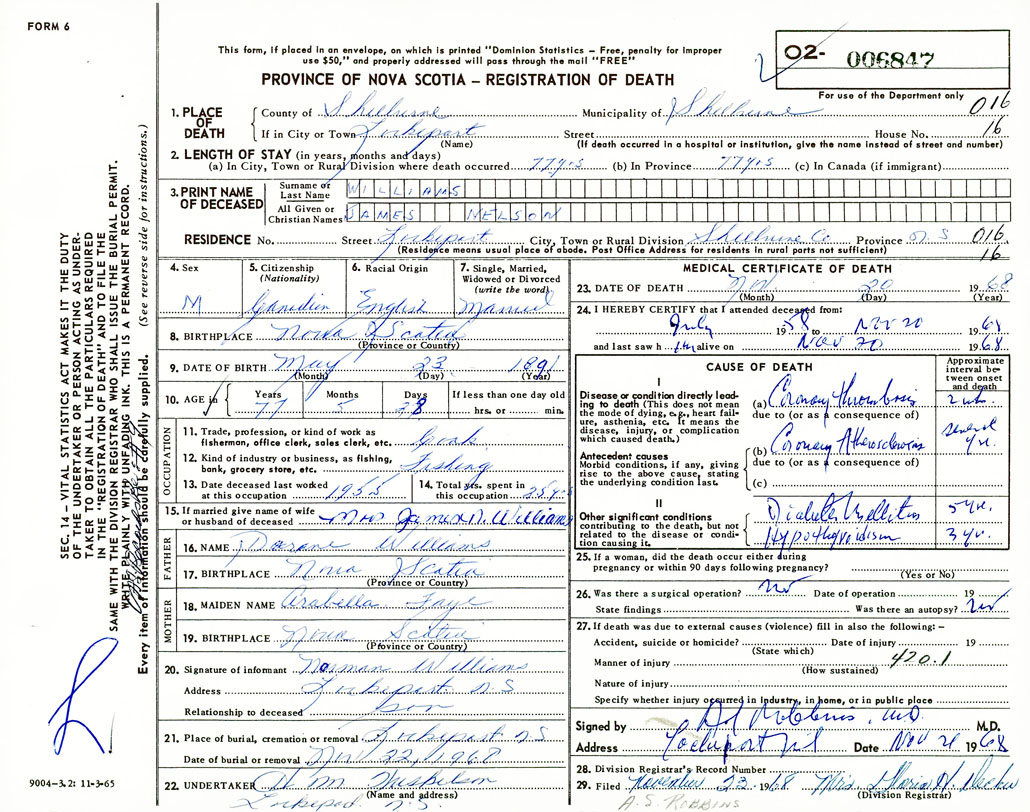 FORM 6
This form, if placed in an envelope, on which is printed "Dominion Statistics – Free, penalty for improper
use $50," and properly addressed will pass through the mail "FREE"
PROVINCE OF NOVA SCOTIA – REGISTRATION OF DEATH
O2- 006847
For use of the Department only
016
16
1. PLACE OF DEATH
County of Shelburne Municipality of Shelburne
If in City or Town Lockeport Street House No.
(Name) (If death occurred in a hospital or institution, give the name instead of street and number)
2. LENGTH OF STAY (in years, months and days)
(a) In City, Town or Rural Division where death occurred 77 yrs (b) In Province 77 yrs (c) In Canada (if immigrant)
3. PRINT NAME OF DECEASED
Surname or Last Name WILLIAMS
All Given or Christian Names JAMES NELSON
RESIDENCE No. Street Lockeport City, Town or Rural Division Shelburne Co Province N.S 016
(Residence means usual place of abode. Post Office Address for residents in rural parts not sufficient) 16
4. Sex M
5. Citizenship (Nationality) Canadian
6. Racial Origin English
7. Single, Married, Widowed or Divorced (write the word) Married
8. BIRTHPLACE Nova Scotia
(Province or Country)
9. DATE OF BIRTH May 23 1891
(Month) (Day) (Year)
10. AGE in Years Months Days If less than one day old
77 5 28 hrs. or min.
OCCUPATION
11. Trade, profession, or kind of work as
fisherman, office clerk, sales clerk, etc. Cook
12. Kind of industry or business, as fishing,
bank, grocery store, etc. Fishing
13. Date deceased last worked
at this occupation 1955
14. Total yrs. spent in
this occupation 25 yrs
15. If married give name of wife
or husband of deceased Mrs James N. Williams
FATHER
16. NAME Williams
17. BIRTHPLACE Nova Scotia
(Province or Country)
MOTHER
18. MAIDEN NAME Arabella Faye
19. BIRTHPLACE Nova Scotia
(Province or Country)
20. Signature of informant Norman Williams
Address Lockeport N.S
Relationship to deceased son
21. Place of burial, cremation or removal Lockeport N.S
Date of burial or removal Nov 22, 1968
22. UNDERTAKER
(Name and address)
Lockeport N.S.
MEDICAL CERTIFICATE OF DEATH
23. DATE OF DEATH Nov 20 1968
(Month) (Day) (Year)
24. I HEREBY CERTIFY that I attended deceased from:
July 1958 to Nov 20 1968
and last saw him alive on Nov 20 1968
CAUSE OF DEATH
Approximate interval between onset and death
I
Disease or condition directly leading to death (This does not mean
the mode of dying, e.g., heart failure, asthenia, etc. It means the
disease, injury, or complication
which caused death.)
(a) Coronary thrombosis
due to (or as a consequence of)
Antecedent causes
Morbid conditions, if any, giving
rise to the above cause, stating
the underlying condition last.
(b) Coronary Atherosclerosis several yr.
due to (or as a consequence of)
(c)
II
Other significant conditions
contributing to the death, but not
related to the disease or condition causing it.
Diabetes Mellitus 5 yr.
Hypothyroidism 3 yr.
25. If a woman, did the death occur either during
pregnancy or within 90 days following pregnancy?
(Yes or No)
26. Was there a surgical operation? no Date of operation 19
State findings Was there an autopsy? no
27. If death was due to external causes (violence) fill in also the following: –
Accident, suicide or homicide? Date of injury 19
(State which)
Manner of injury 420.1
(How sustained)
Nature of injury
Specify whether injury occurred in industry, in home, or in public place
Signed by Robbins M.D. M.D.
Address Lockeport Date Nov 21 1968
28. Division Registrar's Record Number
29. Filed November 23 1968 Mrs.
(Division Registrar)
A.S. ROBBINS
SEC. 14 – VITAL STATISTICS ACT MAKES IT THE DUTY
OF THE UNDERTAKER OR PERSON ACTING AS UNDER-
TAKER TO OBTAIN ALL THE PARTICULARS REQUIRED
IN THE "REGISTRATION OF DEATH" AND TO FILE THE
SAME WITH THE DIVISION REGISTRAR WHO SHALL ISSUE THE BURIAL PERMIT.
WRITE PLAINLY WITH UNFADING INK. THIS IS A PERMANENT RECORD.
Every item of information should be carefully supplied. (See reverse side for instructions.)
9004-3.2: 11-3-65